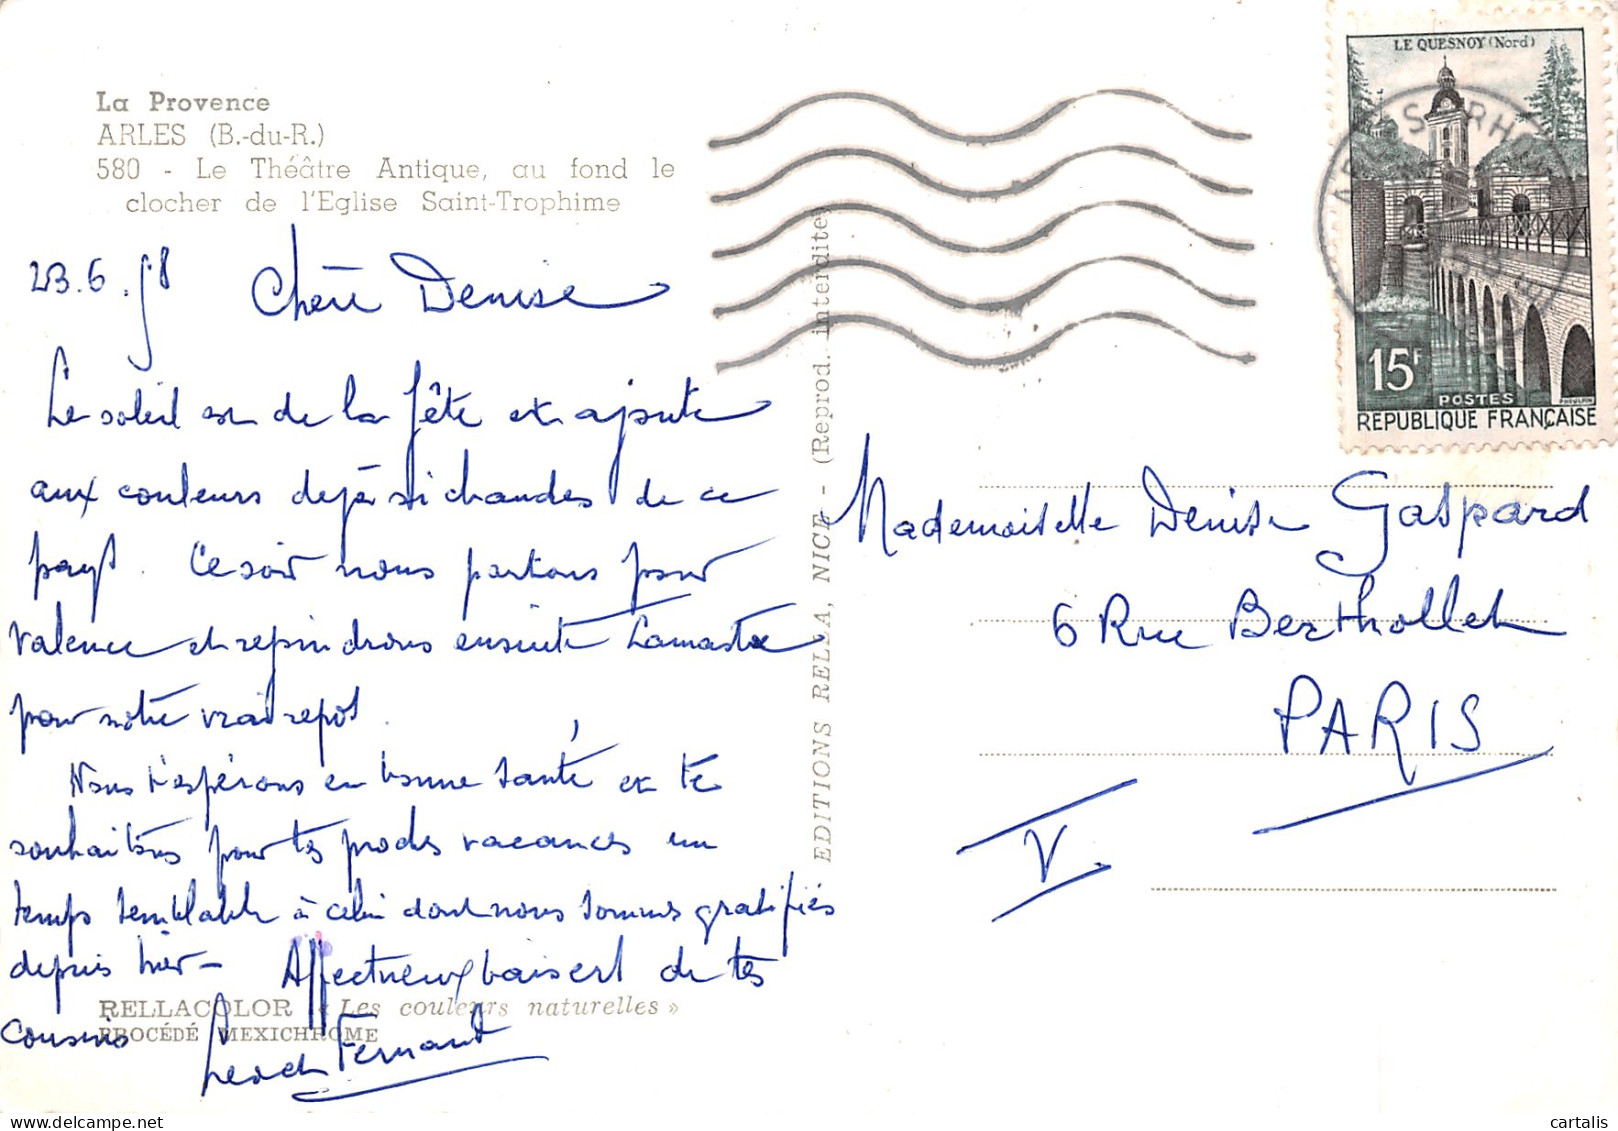 La Provence
ARLES (B.-du-R.)
580 - Le Théâtre Antique, au fond le
clocher de l'Eglise Saint-Trophime
23.6.58 Chère Denise
Le soleil est de la fête et ajoute
aux couleurs déjà si chaudes de ce
pays. Ce soir nous partons pour
Valence et rejoindrons ensuite Lamastre
pour notre vrai repos.
Nous t'espérons en bonne santé et te
souhaitons pour tes proches vacances un
temps semblable à celui dont nous sommes gratifiés
depuis hier - Affectueux baisers de tes
cousins
Fernand
RELLACOLOR « Les couleurs naturelles »
PROCÉDÉ MEXICHROME
EDITIONS RELLA, NICE - (Reprod. interdite)
LE QUESNOY (Nord)
15F
POSTES
REPUBLIQUE FRANÇAISE
ARLES S RHONE
Mademoiselle Denise Gaspard
6 Rue Berthollet
PARIS
V
cartalis
delcampe.net